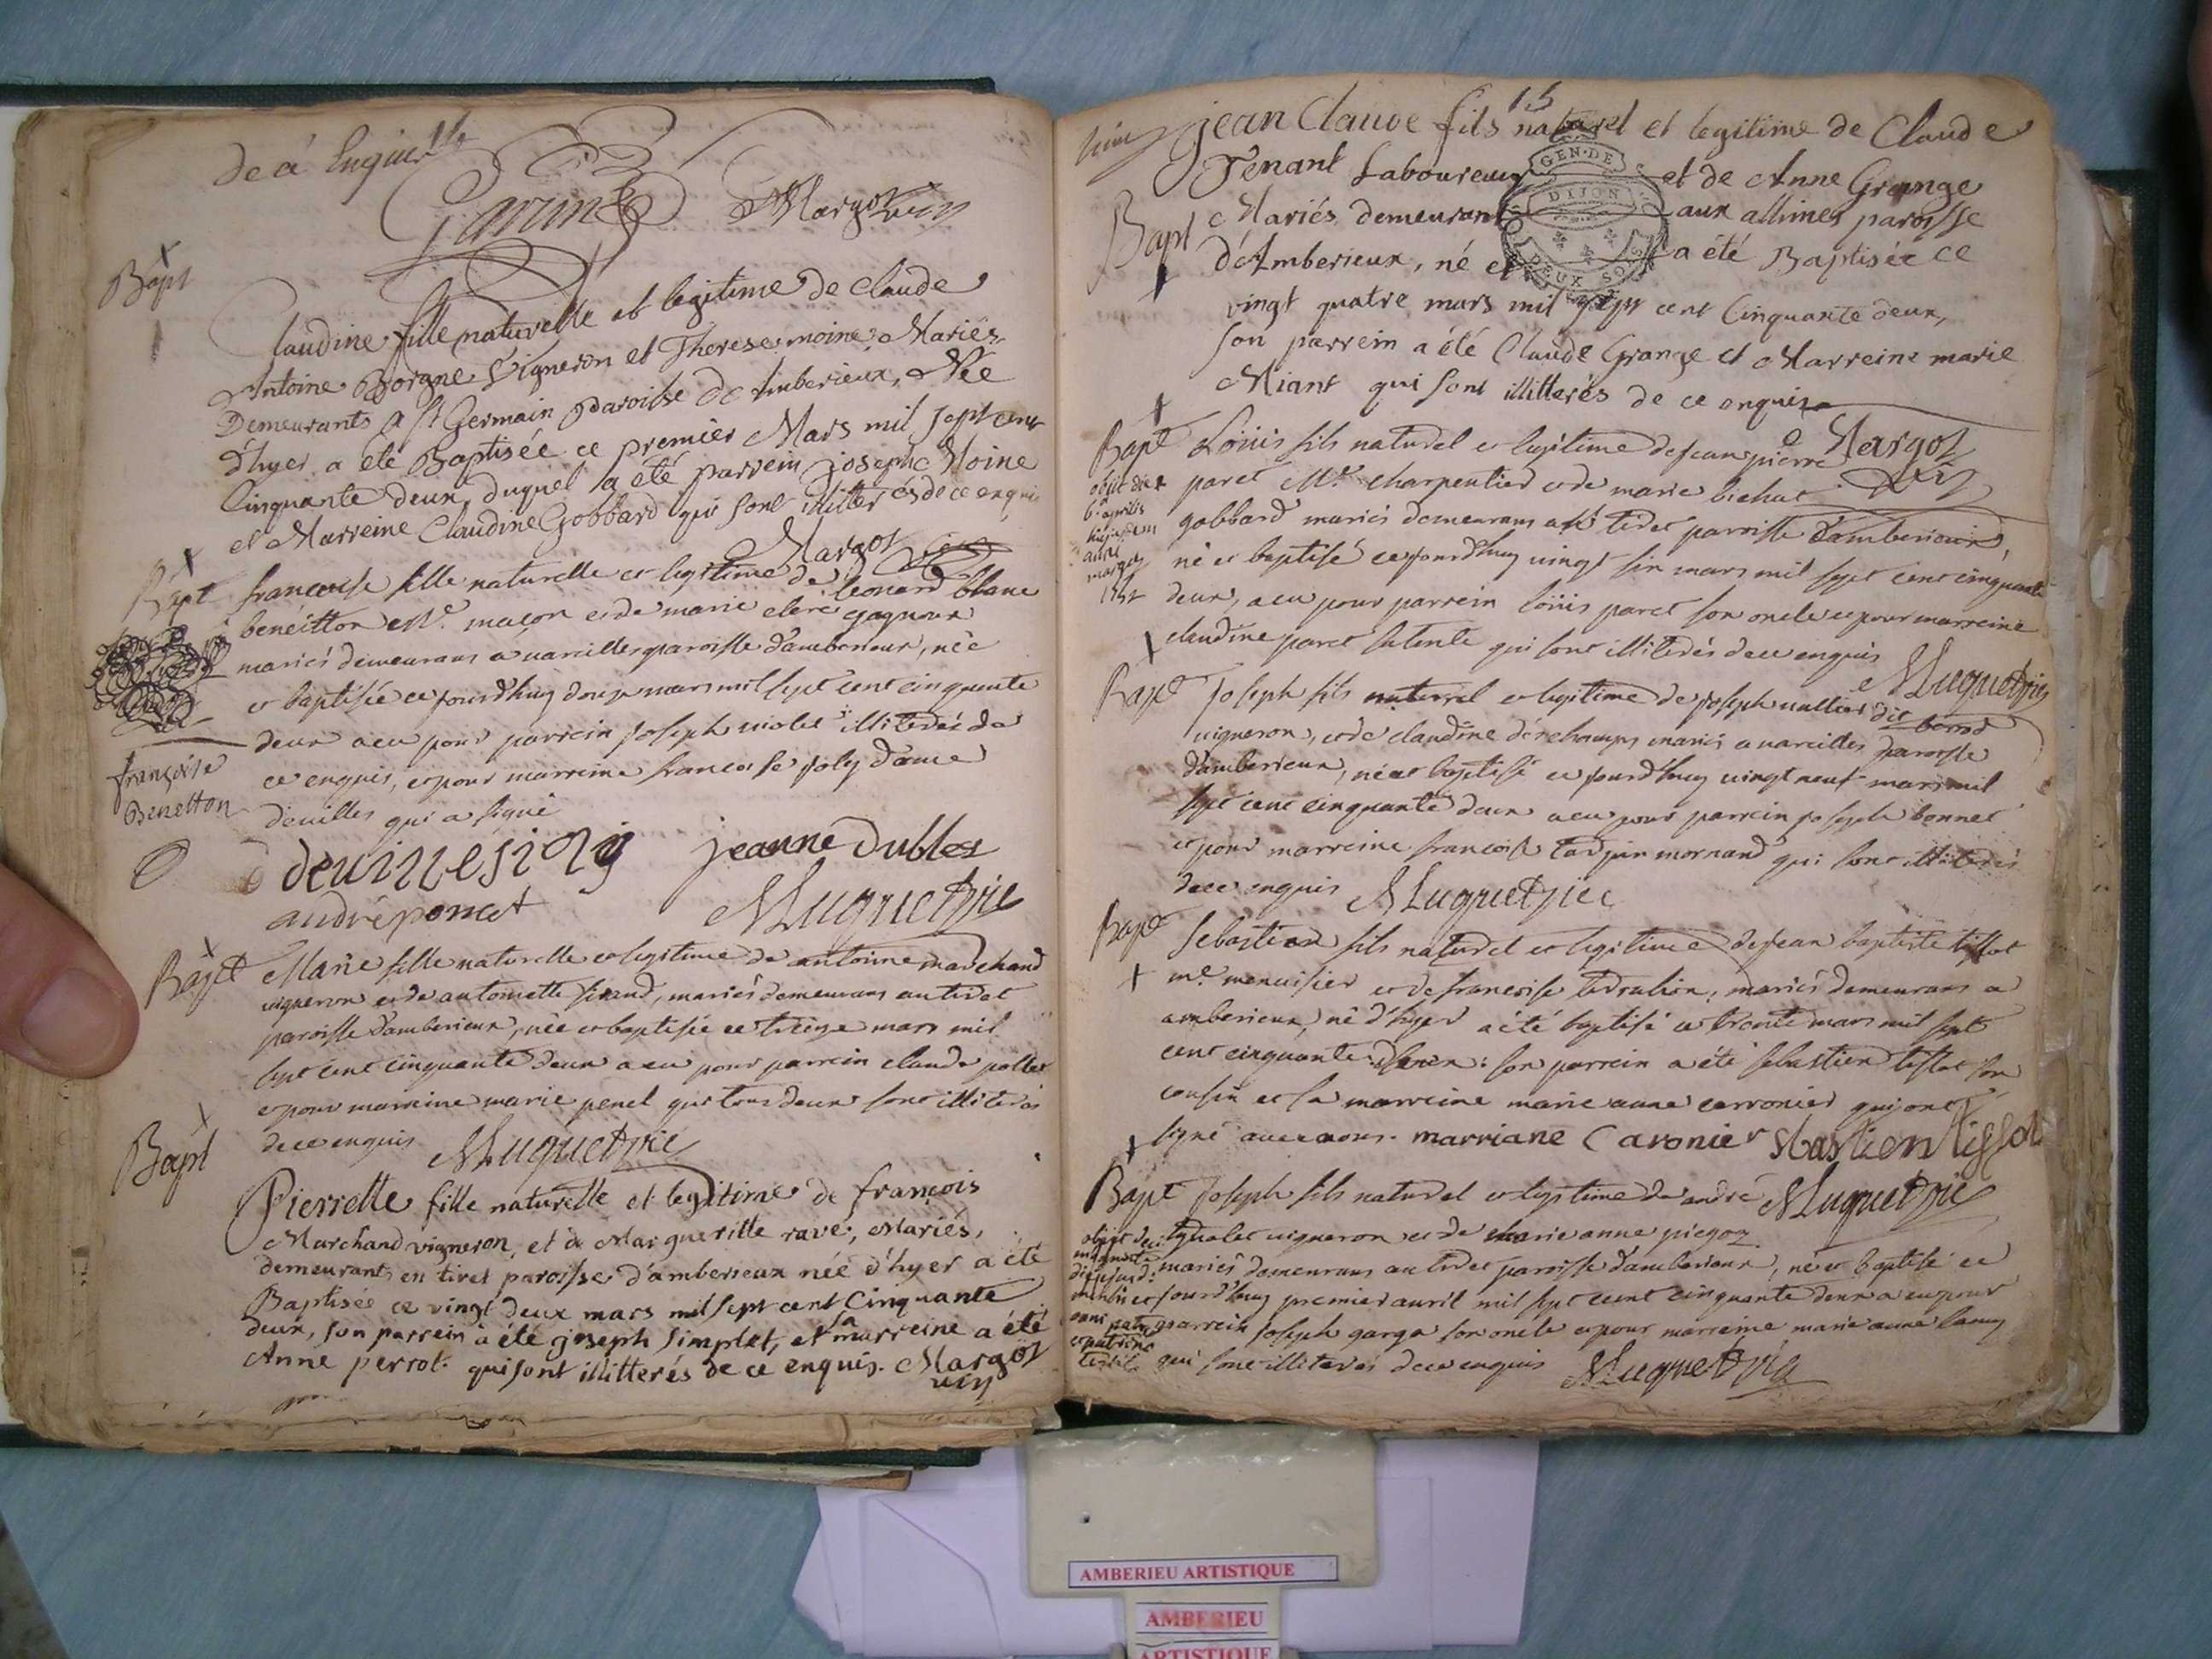 de ce enquis
Garin Margoz vic
Bapt
Claudine fille naturelle et legitime de Claude
Antoine Borgne Vigneron et Therese moine Mariés
Demeurants a St Germain Paroisse d'Amberieux, Née
d'hyer a été Baptisée ce premier Mars mil sept cent
Cinquante deux, duquel a été parrein joseph Moine
et Marreine Claudine Gobbard qui sont illitterés de ce enquis
Margoz vic
Bapt
françoise fille naturelle et legitime de leonard blanc
beneitton Me. maçon et de marie clerc gagneur
mariés demeurans a vareilles paroisse d'amberieux, née
et baptisée ce jourd'huy douze mars mil sept cent cinquante
deux a eu pour parrein joseph violet illiterés de
ce enquis, et pour marreine françoise joly dame
françoise
Benetton
devilles qui a signé
devillesjoly jeanne dublet
andréponcet MLuquet vic
Bapt
Marie fille naturelle et legitime de antoine marchand
vigneron et de antoinette sirand, mariés demeurans au tiret
paroisse d'amberieux, née et baptisée ce treize mars mil
sept cent cinquante deux a eu pour parrein claude pollet
et pour marreine marie penel qui tous deux sont illiterés
de ce enquis MLuquet vic
Bapt
Pierrette fille naturelle et legitime de françois
Marchand vigneron, et de Margueritte ravé, Mariés,
demeurants en tiret paroisse d'amberieux née d'hyer a été
Baptisée ce vingt deux mars mil sept cent Cinquante
deux, son parrein a été joseph simplet, et sa marreine a été
Anne perrot qui sont illitterés de ce enquis. Margoz
vic
15
jean Claude fils naturel et legitime de Claude
Tenant Laboureur et de Anne Grange
Bapt
Mariés demeurant aux allimes paroisse
d'Amberieux, né et a été Baptisée ce
GEN. DE DIJON
DEUX SOLS
vingt quatre mars mil sept cent Cinquante deux,
son parrein a été Claude Grange et Marreine marie
Miant qui sont illitterés de ce enquis
Margoz vic
Bapt
Loüis fils naturel et legitime de jean pierre
paret Me. charpentier et de marie bichat
gobbard mariés demeurans au tiret paroisse d'amberieux,
né et baptisé ce jourd'huy vingt six mars mil sept cent cinquante
deux, a eu pour parrein loüis paret son oncle et pour marreine
claudine paret sa tente qui sont illiterés de ce enquis
obiit die
6a aprilis
MLuquet vic
Bapt
joseph fils naturel et legitime de joseph vallier dit berrod
vigneron, et de claudine deschamps mariés a vareilles paroisse
d'amberieux, né et baptisé ce jourd'huy vingt neuf mars mil
sept cent cinquante deux a eu pour parrein joseph bonnet
et pour marreine françoise mornand qui sont illiterés
de ce enquis MLuquet vic
Bapt
Sebastien fils naturel et legitime de jean baptiste tissot
me. menuisier et de françoise, mariés demeurans a
amberieux, né d'hyer a été baptisé ce trente mars mil sept
cent cinquante deux: son parrein a été sebastien tissot son
cousin et sa marreine marie anne carronier qui ont
signé avec nous. marriane Caronier sbastien tissot
MLuquet vic
Bapt
joseph fils naturel et legitime de andré
vigneron et de marie anne piegoz
mariés demeurans au tiret paroisse d'amberieux, né et baptisé ce
jourd'huy premier avril mil sept cent cinquante deux a eu pour
parrein joseph garga son oncle et pour marreine marie anne
qui sont illiterés de ce enquis MLuquet vic
AMBERIEU ARTISTIQUE
AMBERIEU
ARTISTIQUE